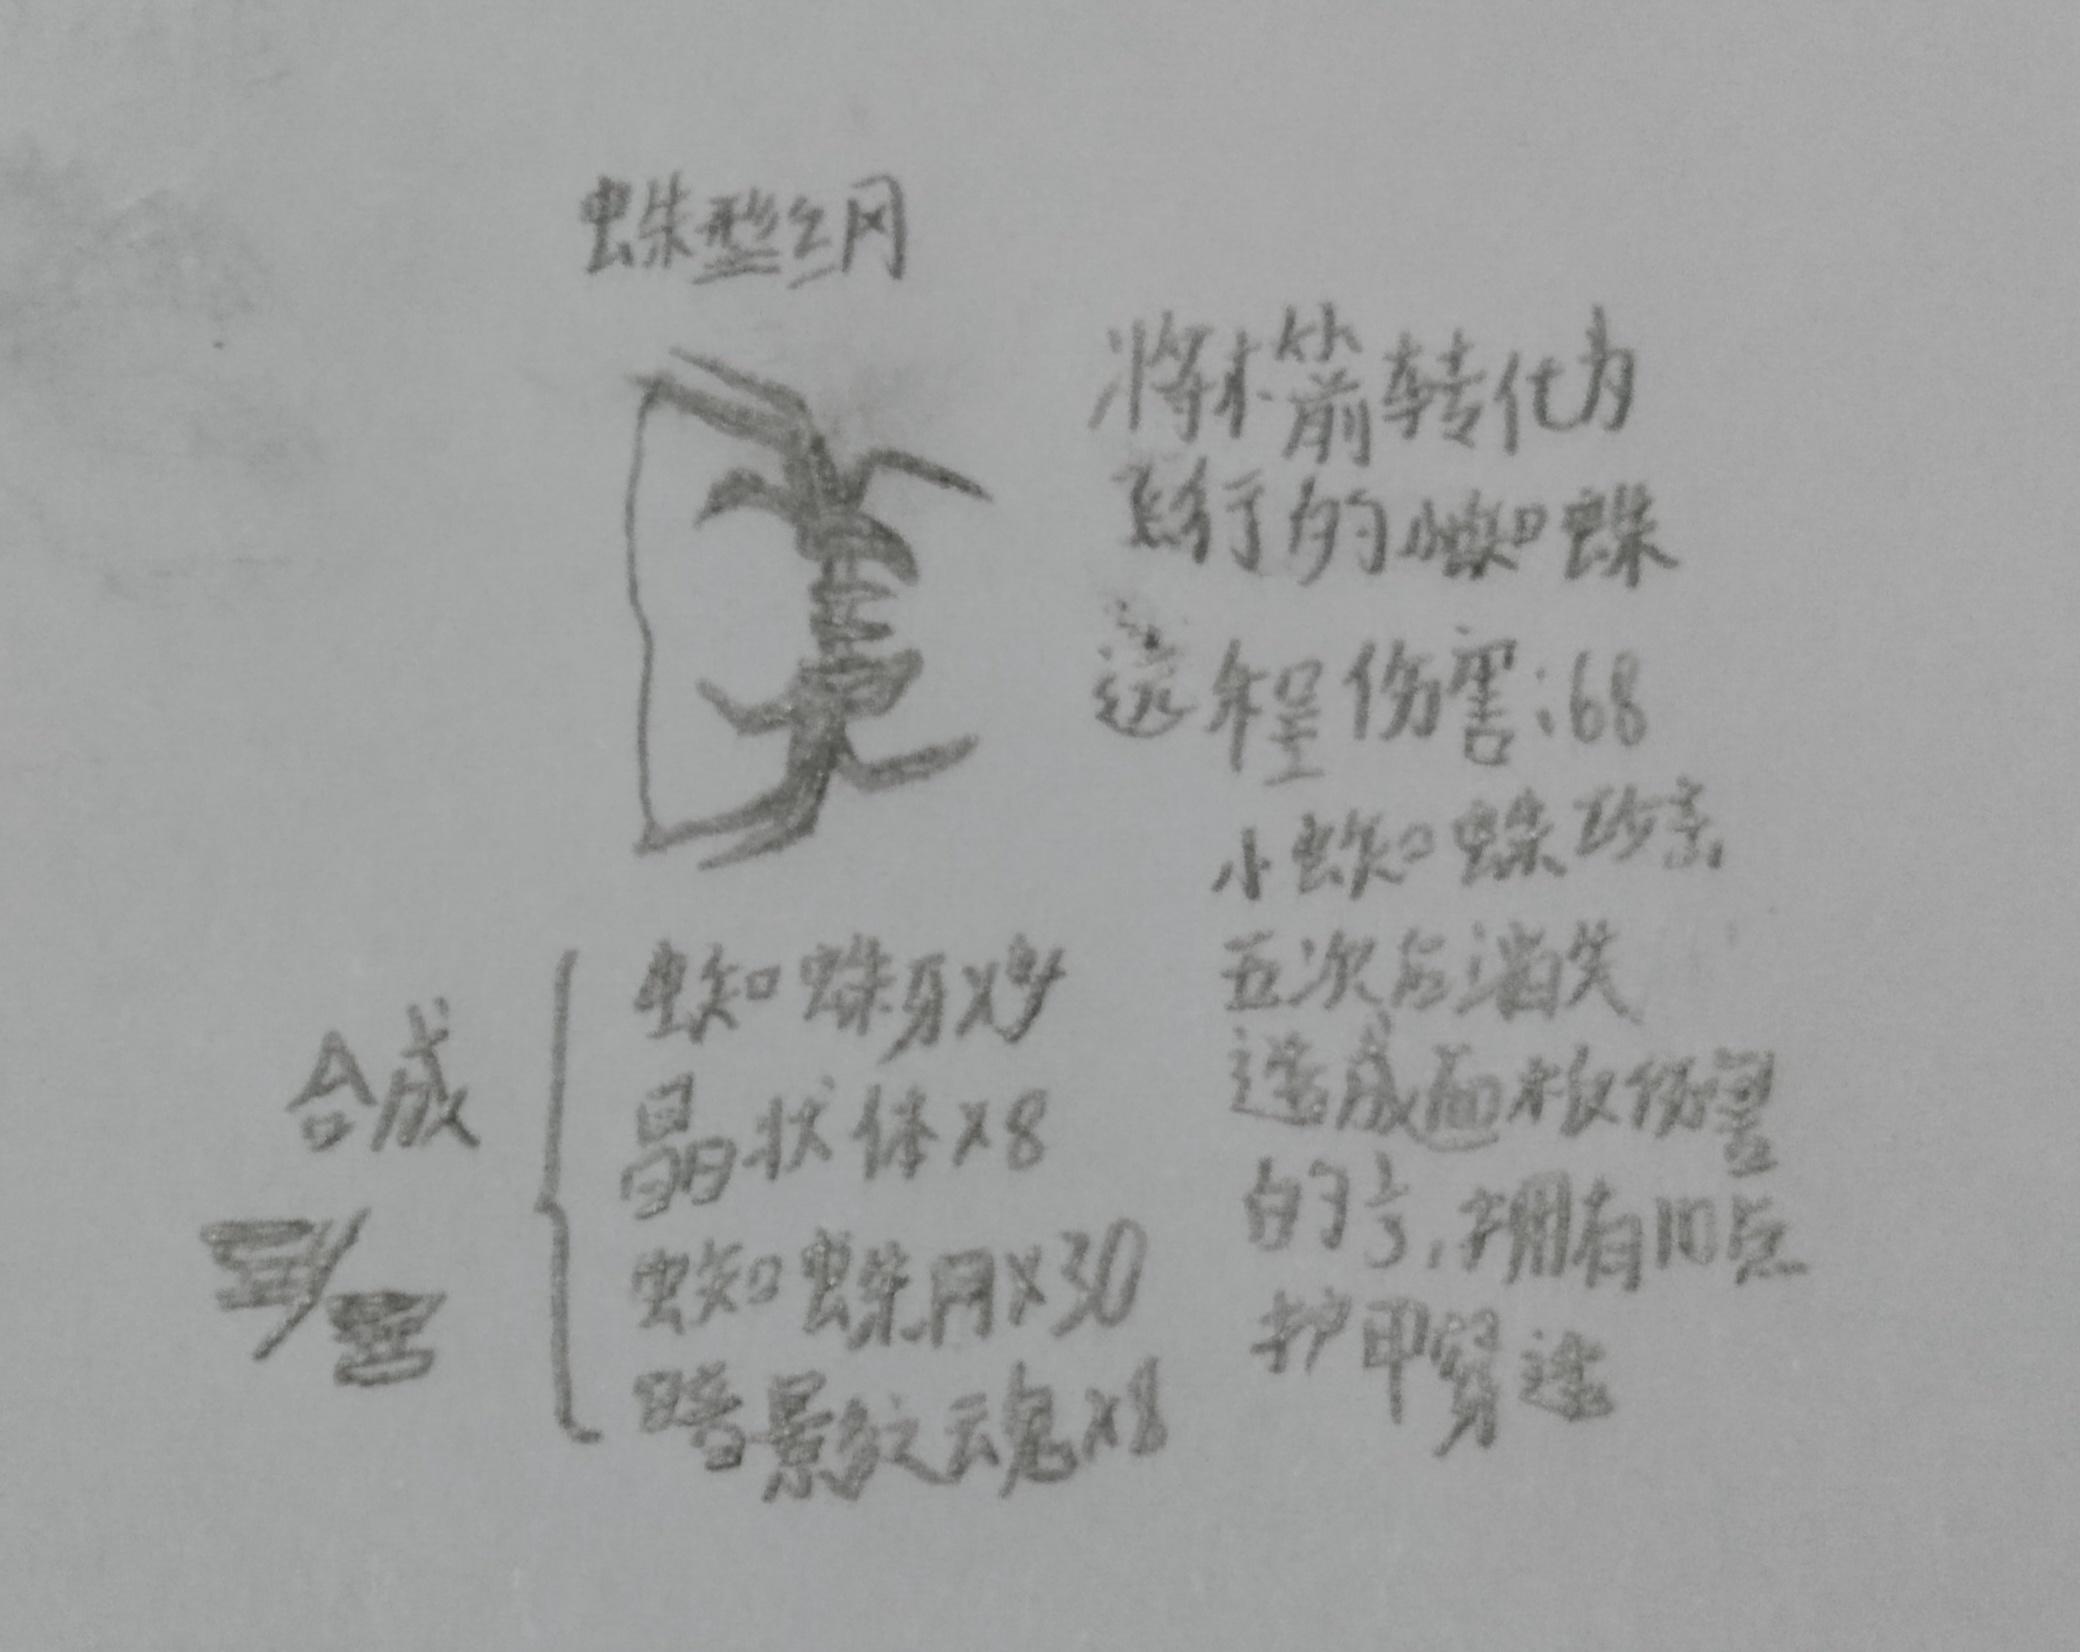 蛛型丝网
将木箭转化为
飞行的小蜘蛛
远程伤害:68
小蜘蛛
五次后消失
造成面板伤害
的1/3,拥有10点
护甲穿透
合成
蜘蛛牙x
晶状体x8
蜘蛛网x30
暗影之魂x8